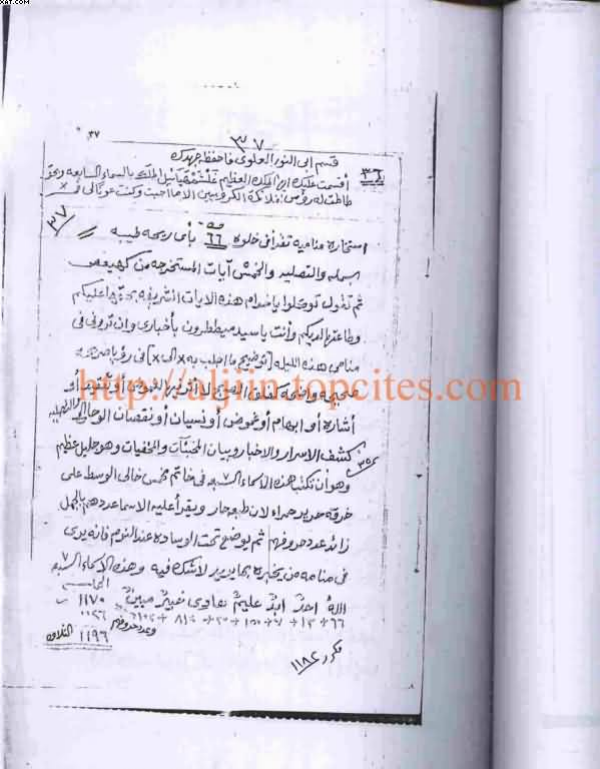 XAT.COM
٣٧
٣٧
قسم الى النور العلوى فاحفظه جهدك
٣٦ أقسمت عليك ايها الملك العظيم الملك بالسماء السابعه وبحق
طاطت له رؤس ملائكة الكروبيين الا ما اجبت وكنت عونا لى
٣٧
استخارة مناميه تقرأ فى خلوه ٦٦ مره بأى ريحه طيبه
البسمله والتصليه والخمس آيات المستخرجه من كهيعص
ثم تقول توكلوا ياخدام هذه الآيات الشريفه بحقها عليكم
وطاعتها لديكم وأنت ياسيد ميططرون بأخبارى وان ترونى فى
منامى هذه الليله (توضيح ما اطلب به x الى x) فى رؤيا صريحه
صحيحه واضحه كفلق الصبح لا أثر فيها لغموض أو تعقيد أو
http://aljjin.topcites.com
أشارة أو ابهام أو غموض أو نسيان أو نقصان الوحا
٣٥٢
كشف الاسرار والاخبار وبيان المخبئات والخفيات وهو جليل عظيم
وهو أن تكتب هذه الاسماء السبعه فى خاتم مخمس خالى الوسط على
خرقه حرير حمراء لان طبعه حار ويقرأ عليه الاسماء عددهم بالجمل
زائد عدد حروفهم ثم يوضع تحت الوساده عند النوم فانه يرى
فى منامه من يخبره بما يريد لا شك فيه وهذه الاسماء السبعه ٧
الله احد ابد عليم خبير مبين ١١٧٠
٦٦ + ١٣ + ٧ + ١٥٠ +
وعدد حروفهم
١١٩٦ التلاوه
مكرر ١١٨٢